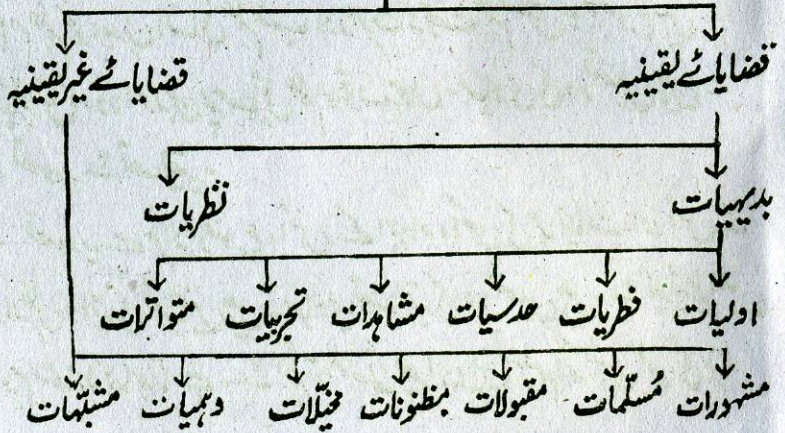 قضایائے یقینیہ قضایائے غیر یقینیہ
بدیہیات نظریات
اولیات فطریات حدسیات مشاہدات تجربیات متواترات
مشہورات مُسلّمات مقبولات مظنونات مخیّلات وہمیات مشبّہات